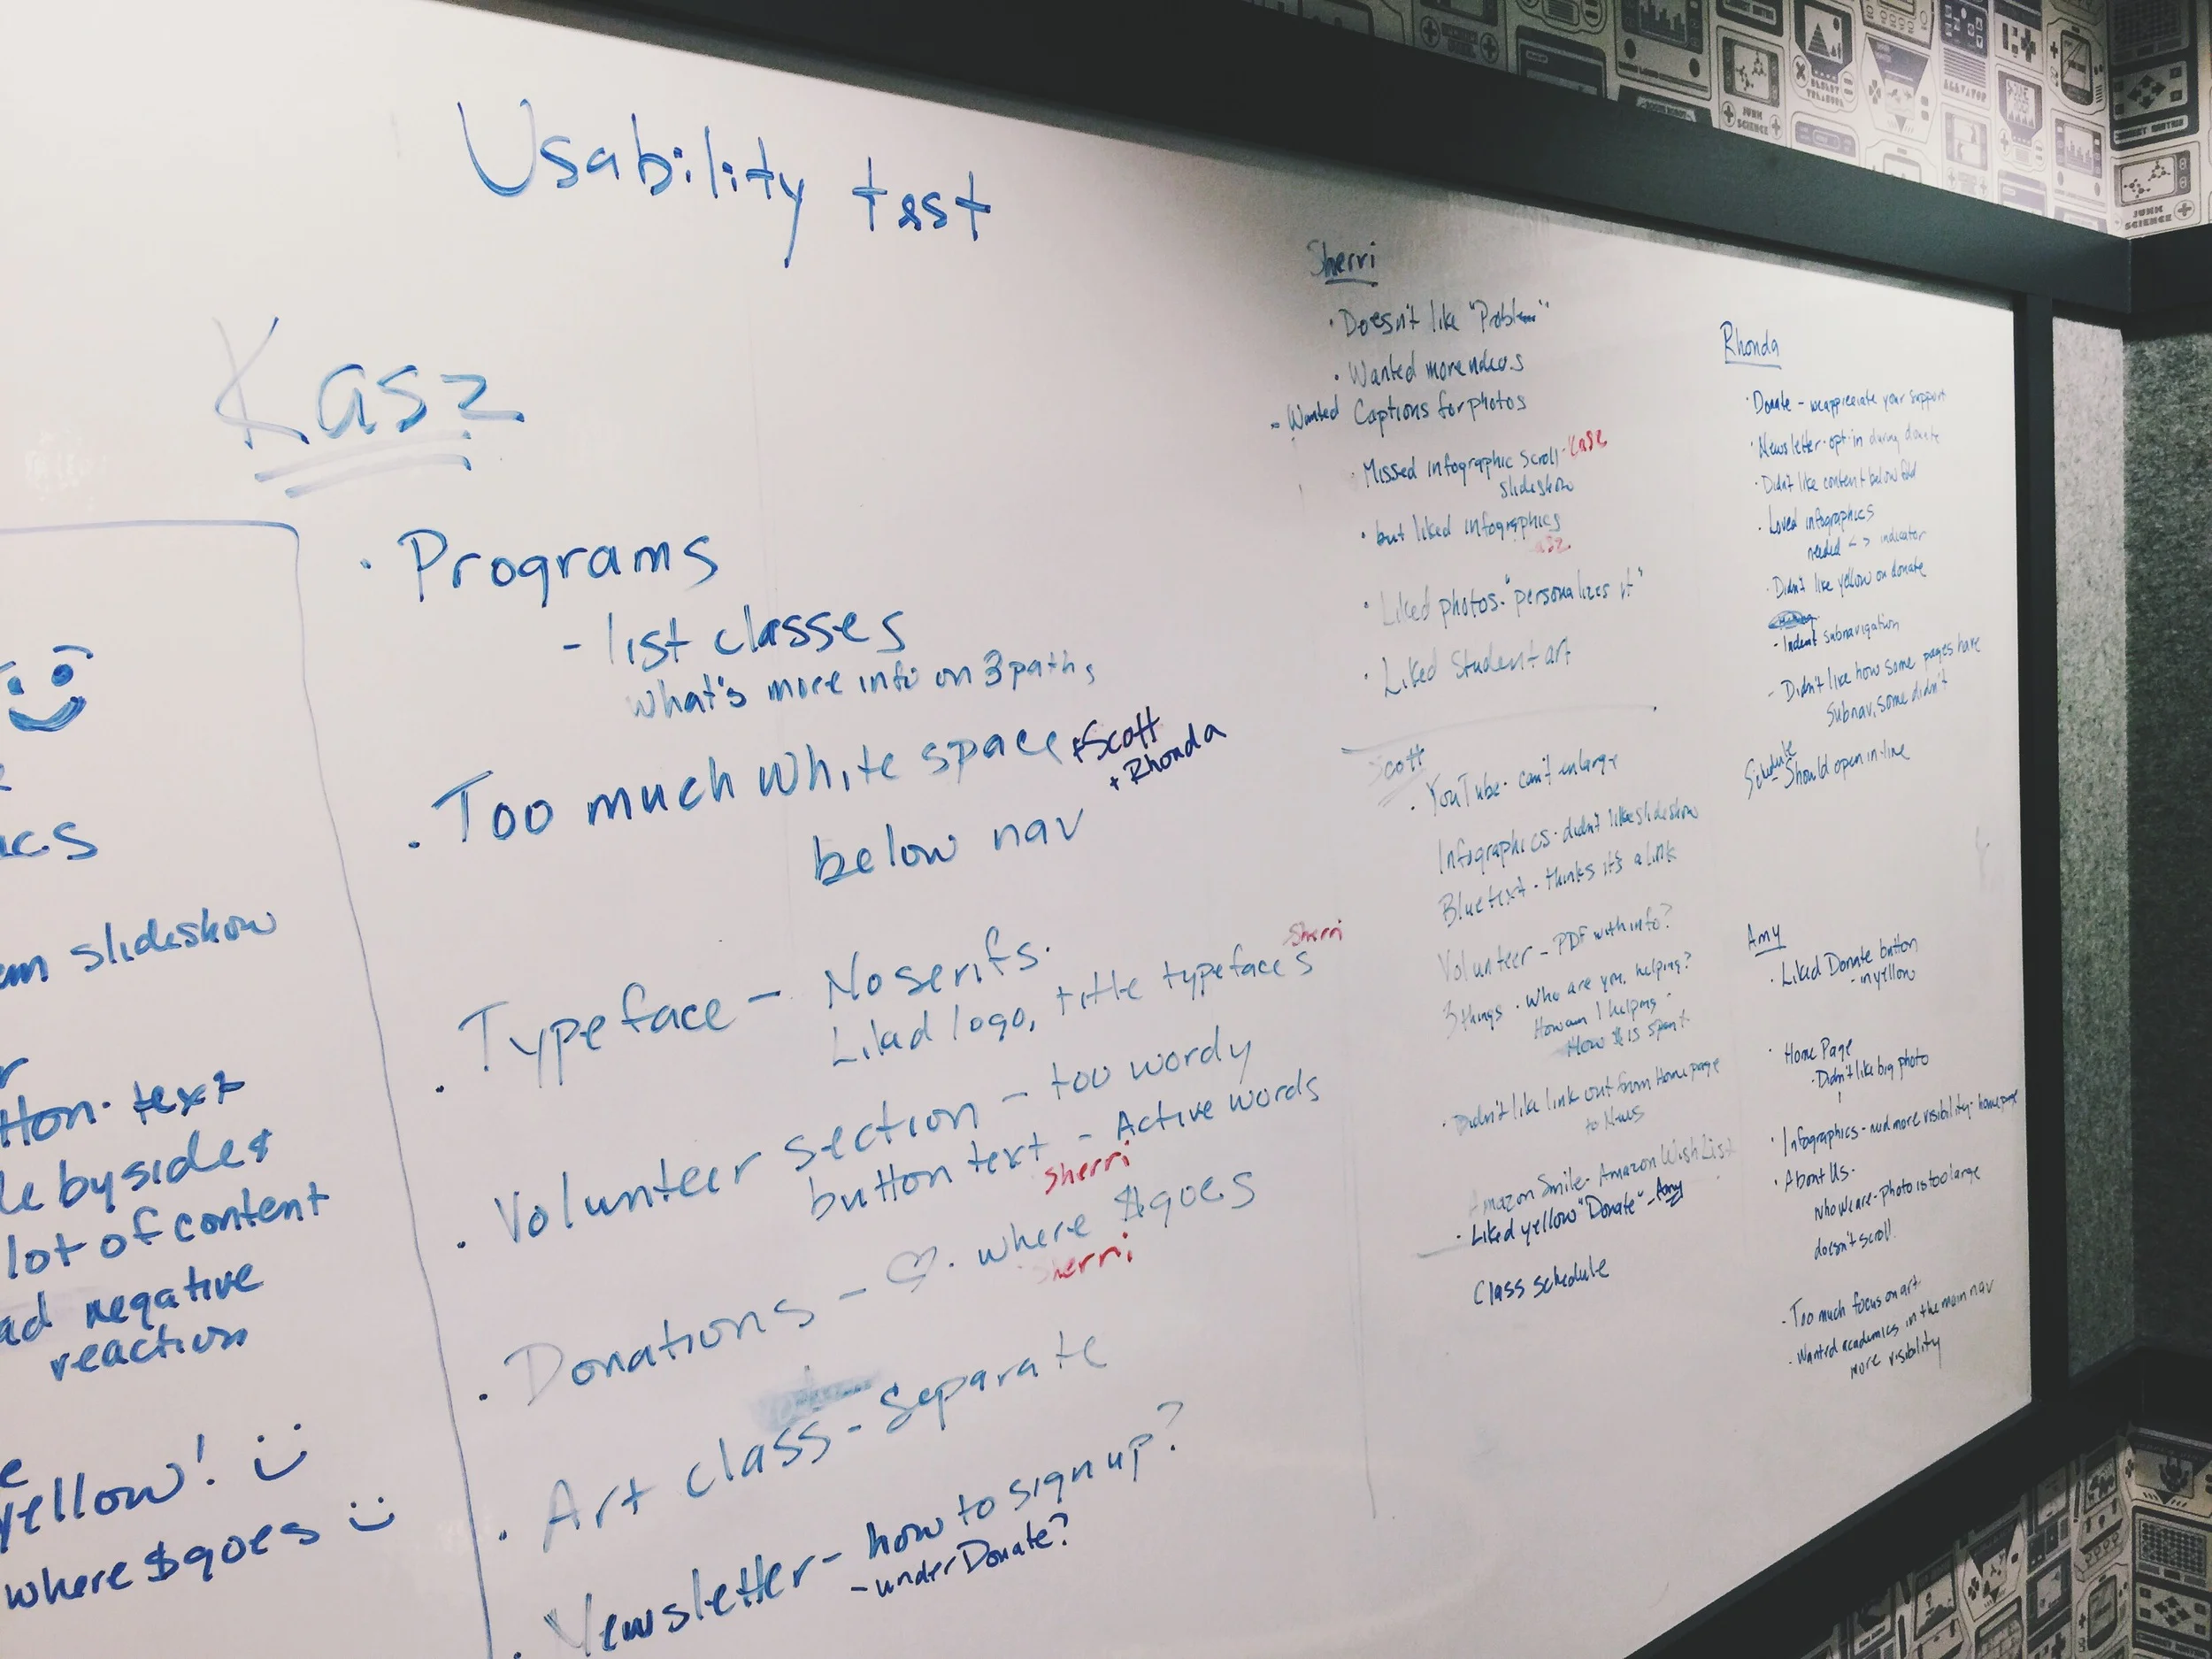 Usability test
Kasz
· Programs
- list classes
what's more info on 3 paths
· Too much white space + Scott
+ Rhonda
below nav
· Typeface - No serifs.
Liked logo, title typefaces
Sherri
· Volunteer section - too wordy
button text - Active words
Sherri
· Donations - ♡. where $ goes
Sherri
· Art class - Separate
· Newsletter - how to sign up?
- under Donate?
ics
slideshow
text
by sides
lot of content
negative
reaction
yellow! :)
where $ goes :)
Sherri
· Doesn't like "Problem"
· Wanted more videos
- Wanted Captions for photos
· Missed infographic scroll - Kasz
slideshow
· but liked infographics
· Liked photos - "personalizes it"
· Liked Student art
Scott
· YouTube - can't enlarge
Infographics - didn't like slideshow
Blue text - thinks it's a link
Volunteer - PDF with info?
3 things · Who are you helping?
How am I helping
How $ is spent
· Didn't like link out from Home page
to News
Amazon Smile - Amazon Wish List
· Liked yellow "Donate" - Amy
Class schedule
Rhonda
· Donate - we appreciate your support
· Newsletter - opt-in during donate
· Didn't like content below fold
· Loved infographics
needed < > indicator
· Didn't like yellow on donate
- Indent subnavigation
- Didn't like how some pages have
Subnav, some didn't
Schedule
- Should open in-line
Amy
· Liked Donate button
- in yellow
· Home Page
· Didn't like big photo
· Infographics - need more visibility - homepage
· About Us -
who we are - photo is too large
doesn't scroll.
- Too much focus on art
· Wanted academics in the main nav
more visibility